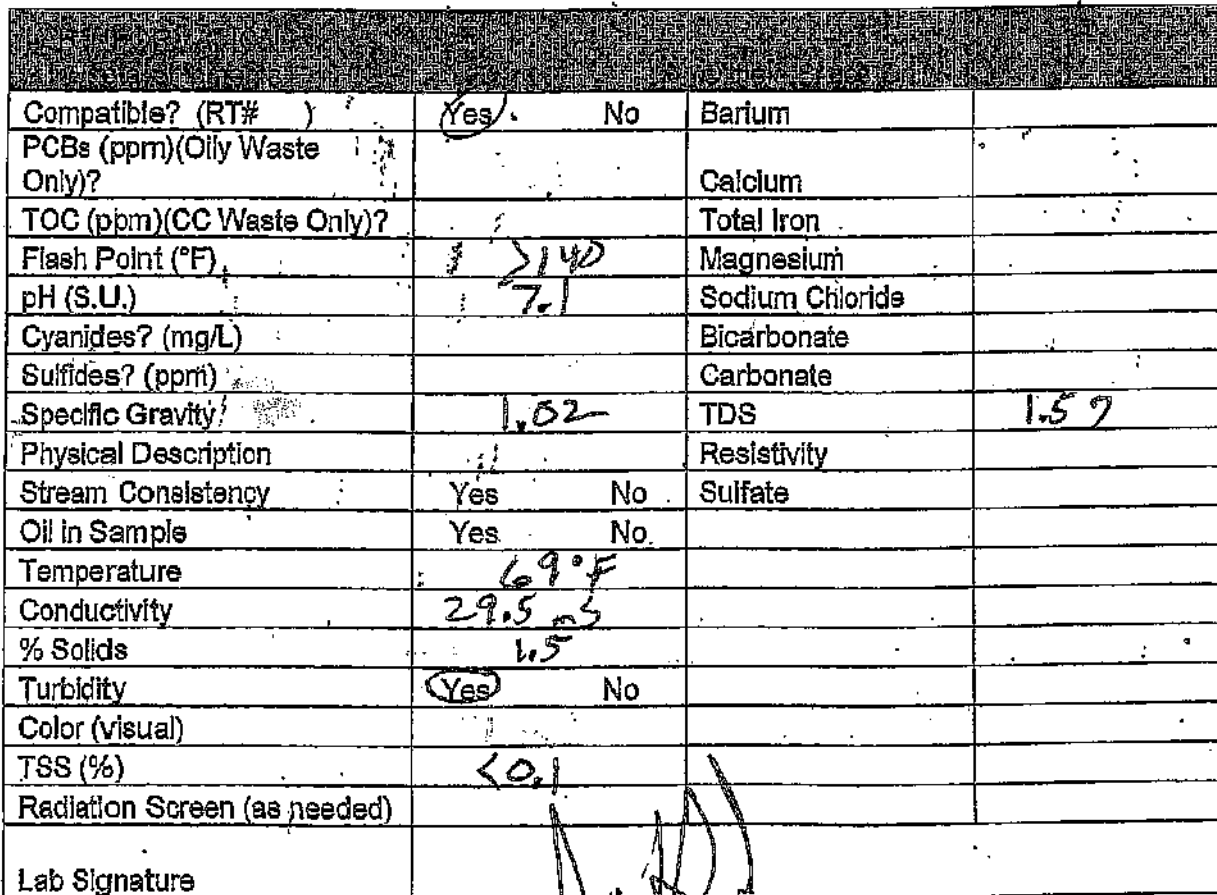 Compatible? (RT# ) Yes No Barium
PCBs (ppm)(Oily Waste
Only)? Calcium
TOC (ppm)(CC Waste Only)? Total Iron
Flash Point (°F) >140 Magnesium
pH (S.U.) 7.1 Sodium Chloride
Cyanides? (mg/L) Bicarbonate
Sulfides? (ppm) Carbonate
Specific Gravity 1.02 TDS 1.57
Physical Description Resistivity
Stream Consistency Yes No Sulfate
Oil in Sample Yes No
Temperature 69°F
Conductivity 29.5 mS
% Solids 1.5
Turbidity Yes No
Color (visual)
TSS (%) <0.1
Radiation Screen (as needed)
Lab Signature